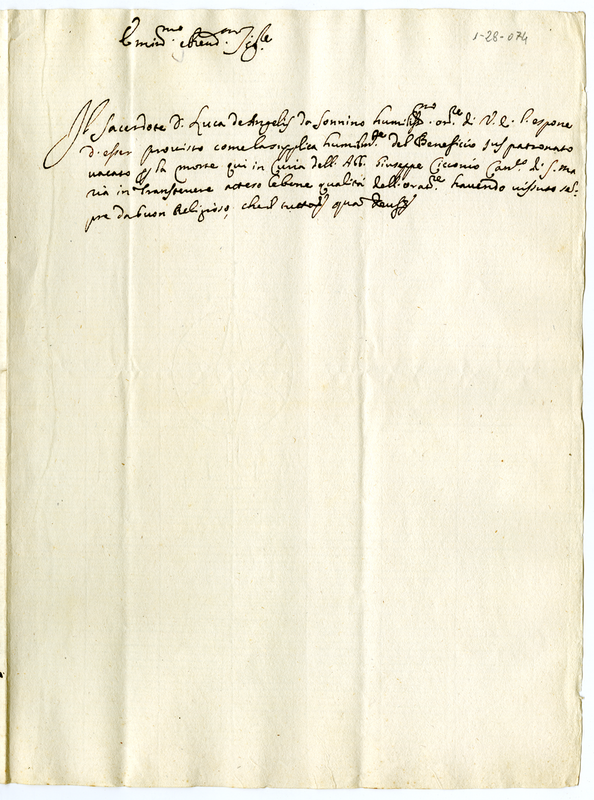 1-28-074
Emin.mo e Rend.mo Sig.re
Il Sacerdote D. Luca de Angelis da Sonnino humiliss.mo or.re di V. E. l'espone
d'esser provisto come la supplica humilm.te del Beneficio Juspatronato
vacato per la morte qui in Curia dell'Abb. Giuseppe Cicconio Can.co di S. Ma
ria in Transtevere atteso le bene qualità dell'orat.re havendo vissuto se=
pre da buon Religioso, che il tutto qua Deus